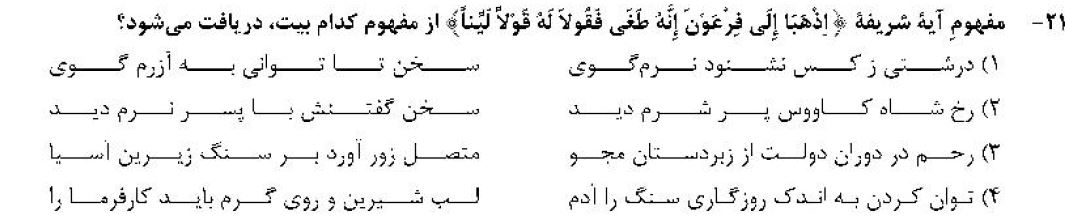 ۲۱- مفهوم آیهٔ شریفهٔ ﴿اِذْهَبَا إِلَى فِرْعَوْنَ إِنَّهُ طَغَى فَقُولاَ لَهُ قَوْلاً لَيِّناً﴾ از مفهوم کدام بیت، دریافت می‌شود؟
۱) درشتی ز کس نشنود نرم‌گوی سخن تا توانی به آزرم گوی
۲) رخ شاه کاووس پر شرم دید سخن گفتنش با پسر نرم دید
۳) رحم در دوران دولت از زبردستان مجو متصل زور آورد بر سنگ زیرین آسیا
۴) توان کردن به اندک روزگاری سنگ را آدم لب شیرین و روی گرم باید کارفرما را